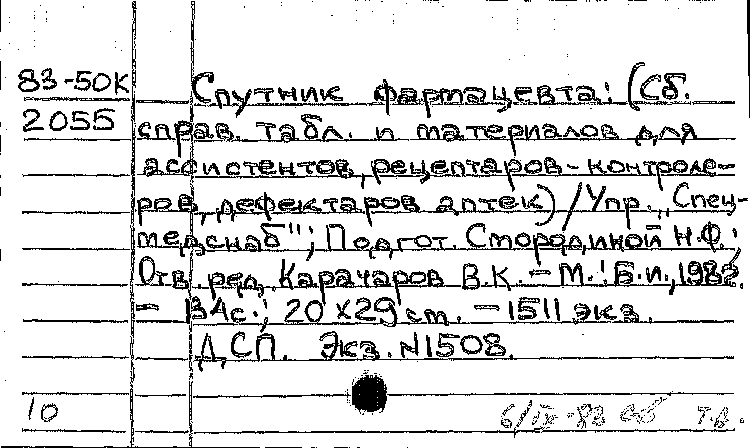 83-50К
2055
Спутник фармацевта: (Сб.
справ. табл. и материалов для
ассистентов, рецептаров-контроле-
ров, дефектаров аптек) / Упр. „Спец-
медснаб"; Подгот. Стородиной Н.Ф.;
Отв. ред. Карачаров В.К. – М.: Б.и., 1982.
– 134с.; 20 х29 ст. – 1511 экз.
ДСП. Экз. N1508.
10
6/IX-83
Т.В.